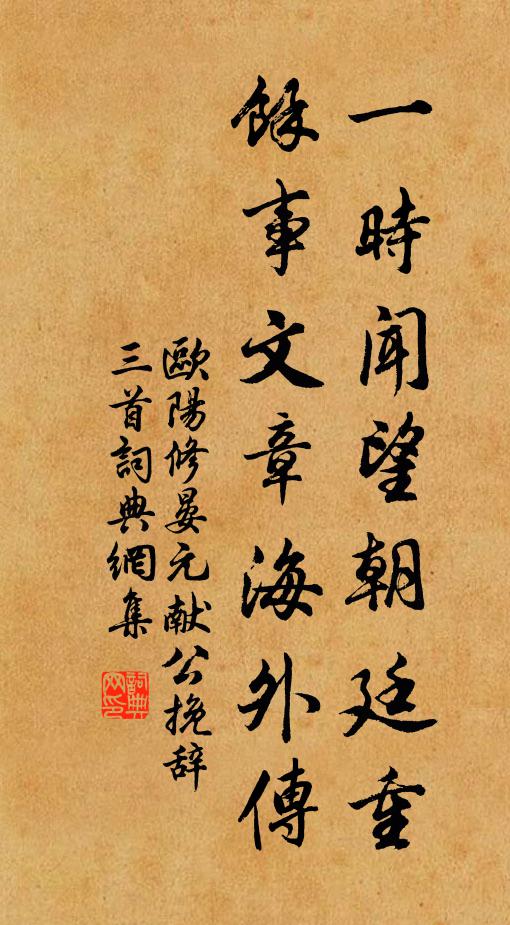 一時聞望朝廷重
餘事文章海外傳
歐陽修晏元献公挽辞
三首詞典網集
詞典网印